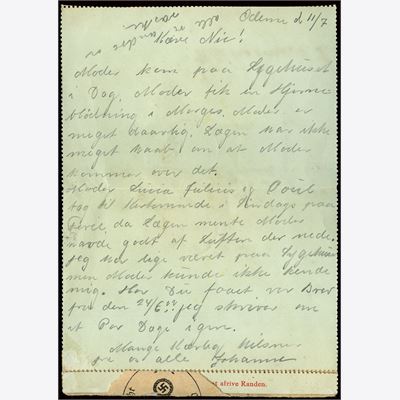 Odense d 11/7
Kære Nic!
Moder kom paa Sygehuset
i Dag, Moder fik en Hjerne
blødning i Morges, Moder er
meget daarlig. Lægen har ikke
meget Haab om at Moder
kommer over det.
Moder Lucia og
tog til Kerteminde i Søndags paa
Ferie, da Lægen mente Moder
havde godt af Luften der nede.
Jeg har lige været paa Sygehuset
men Moder kunde ikke kende
mig. Har Du faaet vor Brev
fra den 24/6 jeg skriver om
et Par Dage igen.
Mange Kærlig Hilsner
fra os alle Johanne
t afrive Randen.